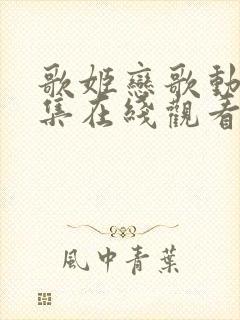 歌姬戀歌動
集在綫觀看
風中青葉